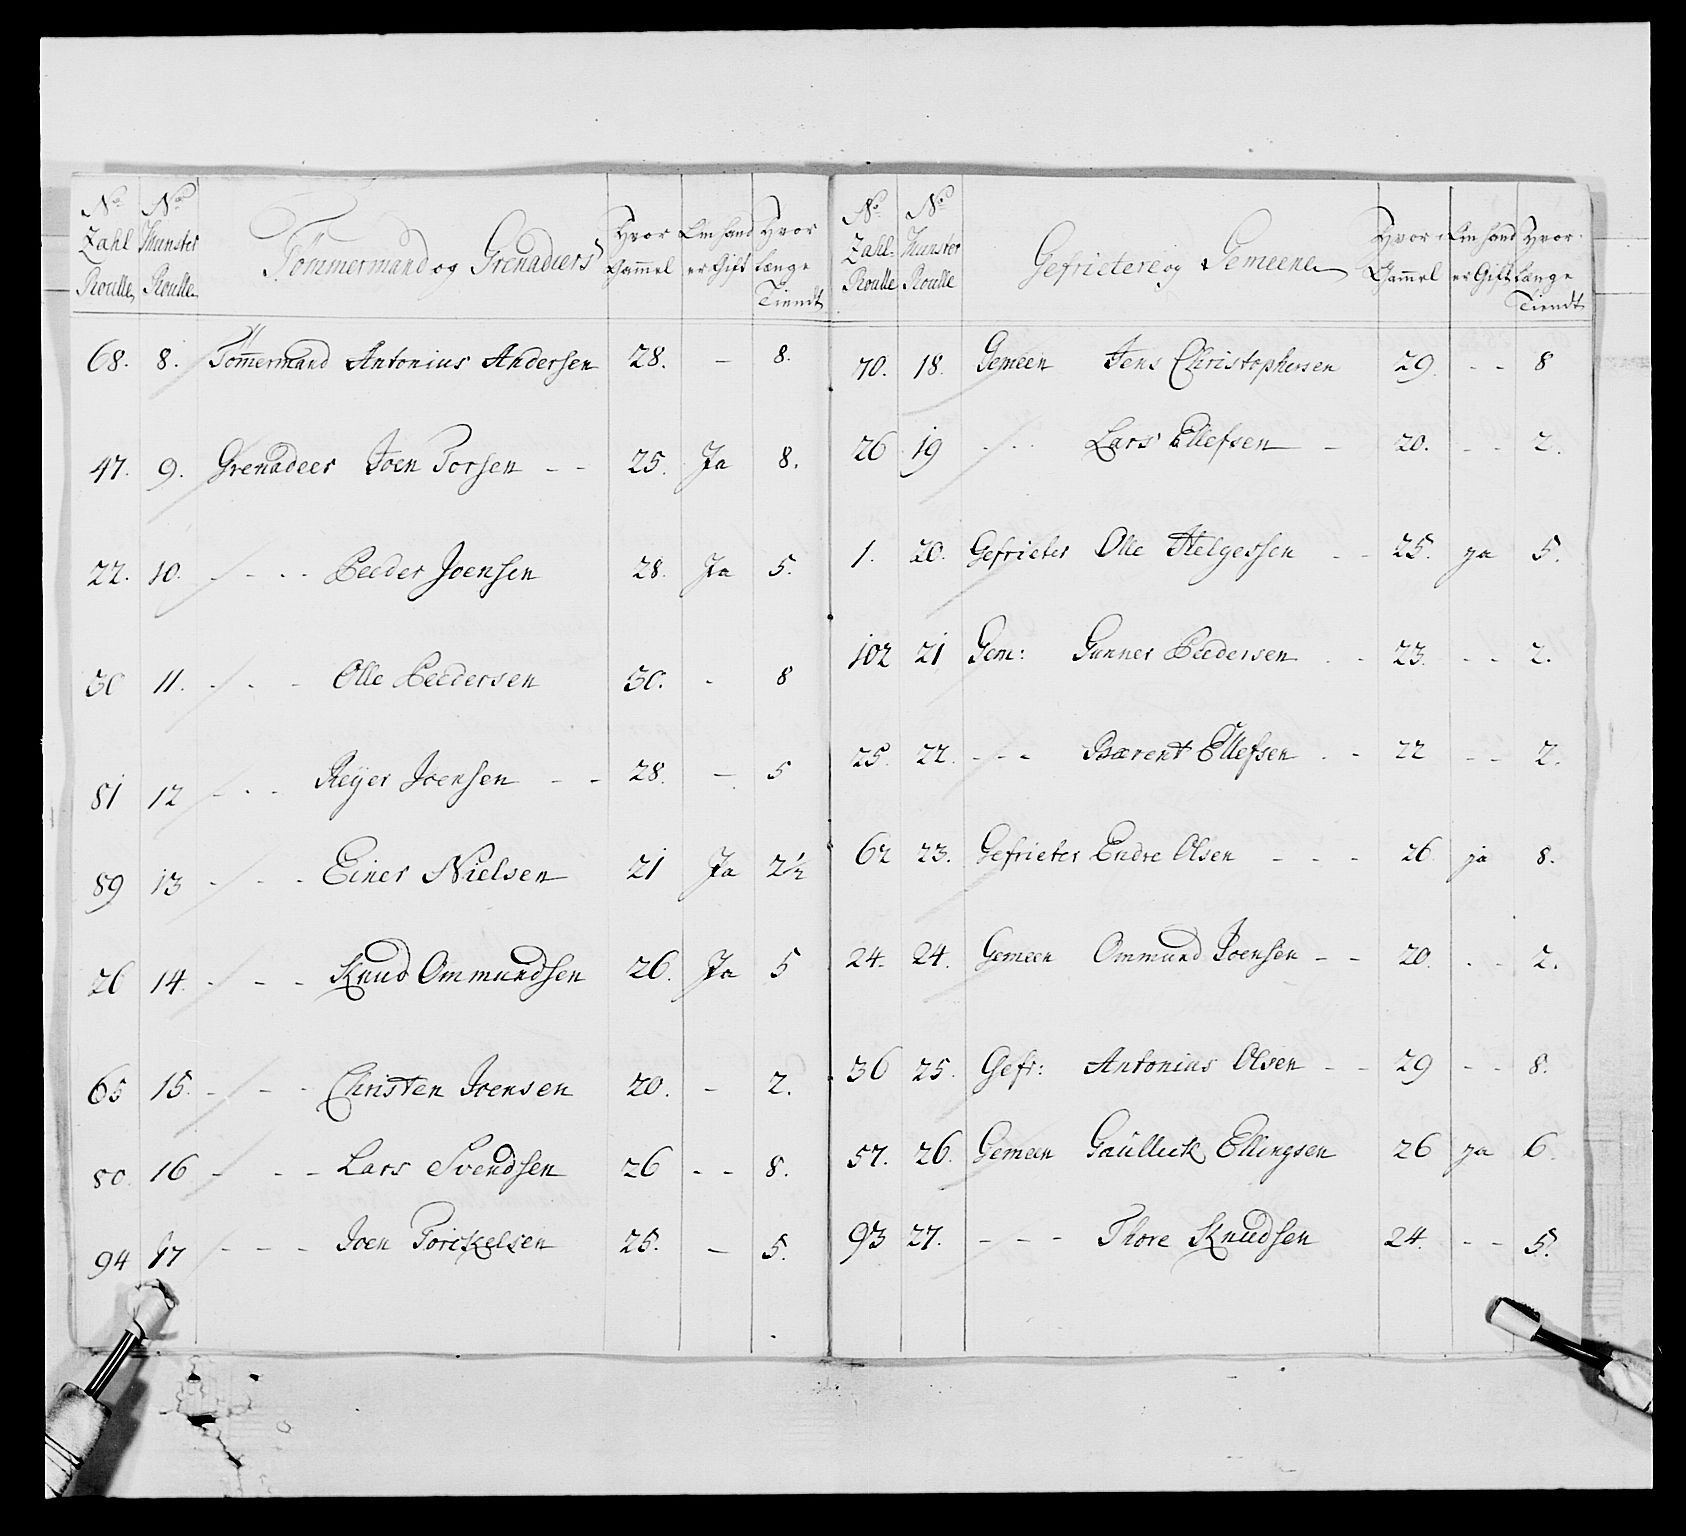 No Zahl Roulle No Munster Roulle Tömmermand og Grenadiers Hvor Gammel Om hand er Gift Hvor længe Tiendt
68. 8. Tömermand Antonius Andersen 28. – 8.
47. 9. Grenadeer Joen Torsen – – 25. Ja 8.
22. 10. – – – Peeder Joensen 28. Ja 5.
30 11. – – – Olle Peedersen 30. – 8
81 12 – – – Reÿer Joensen – – 28. – 5
89 13 – – – Einer Nielsen 21 Ja 2½
26 14. – – – Knud Ommundsen 26. Ja 5
65 15. – – – Christen Joensen 20. – 2.
80. 16 – – – Lars Svendsen 26 – – 8.
94 17 – – – Joen Torckelsen 25. – 5.
No Zahl Roulle No Munster Roulle Gefrietere og Gemeene Hvor Gammel Om hand er Gift Hvor længe Tiendt
70. 18. Gemeen Jens Christophersen 29. – – 8
26 19 – – Lars Ellefsen – 20. – – 2.
1. 20. Gefrieter Olle Helgersen – – 25. ja 5.
102 21 Gem: Gunner Peedersen – – 23. – – 2.
25. 22. – – – Bærent Ellefsen – – 22 – – 2.
62 23. Gefrieter Endre Olsen – – – 26 ja 8.
24. 24. Gemeen Ommund Joensen – – 20. – – 2.
36 25. Gefr: Antonius Olsen – – 29 – – 8.
57. 26. Gemeen Gaülluk Ellingsen 26 ja 6.
93 27. – – – Thore Knudsen 24. – – 5.